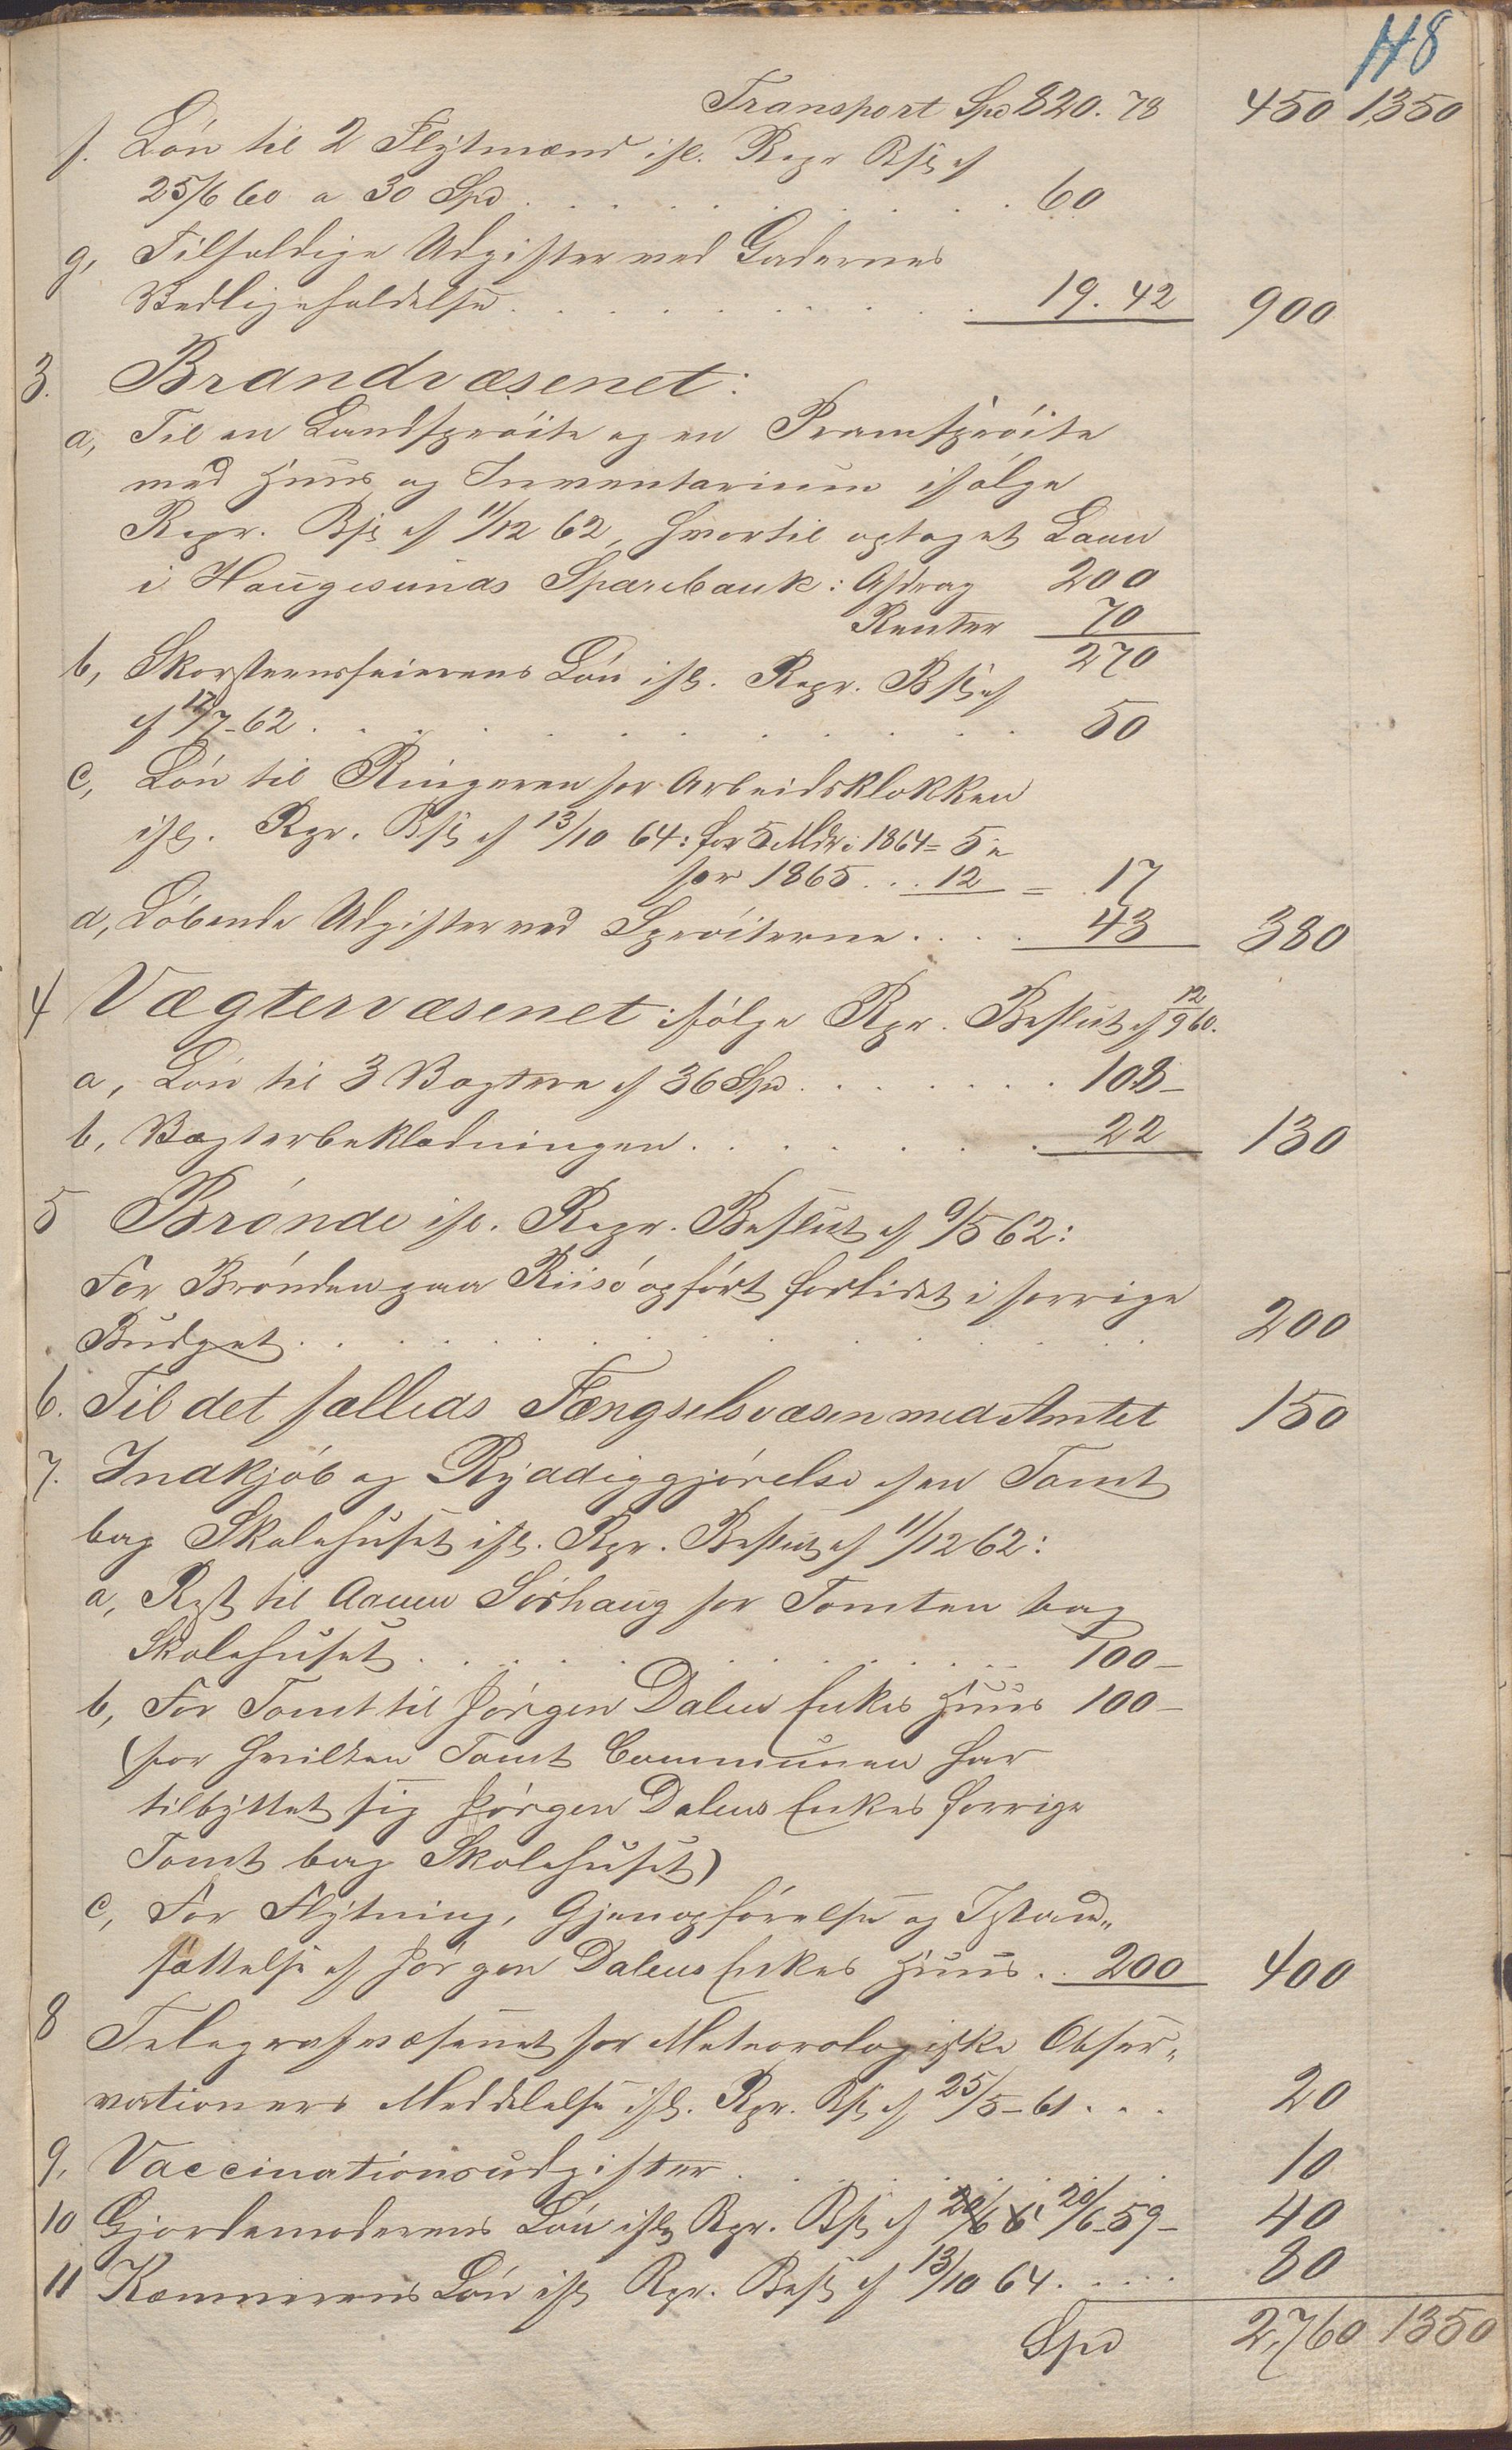 118
Transport Spd 820. 78 450 1350
f. Løn til 2 Flytmænd ifl. Repr Bsl af
25/6 60 a 30 Spd . . . 60
g, Tilfældige Udgifter ved Gadernes
Vedligeholdelse . . . 19. 42 900
3. Brandvæsenet:
a, Til en Landsprøite og en Pramsprøite
med Huus og Inventarium ifølge
Repr. Bsl af 11/12 62, hvortil optaget Laan
i Haugesunds Sparebank: Afdrag 200
Renter 70
270
b, Skorsteensfeierens Løn ifl. Repr. Bsl af
af 17/7-62 . . . 50
c, Løn til Ringeren for Arbeidsklokken
ifl. Rpr. Bsl af 13/10 64: for 5 Mdr i 1864 = 5
for 1865 . . . 12 = 17
d, Løbende Udgifter ved Sprøiterne . . . 43 380
4 Vægtervæsenet ifølge Rpr. Beslut af 12/9 60.
a, Løn til 3 Vægtere af 36 Spd . . . 108-
b, Vægterbeklædningen . . . 22 130
5 Brønde ifl. Repr. Beslut af 9/5 62:
For Brønden paa Riisø opført forlidet i forrige
Budget . . . 200
6. Til det fælleds Fængselsvæsen med Amtet 150
7. Indkjøb og Ryddiggjørelse af en Tomt
bag Skolehuset ifl. Rpr. Beslut af 11/12 62:
a, Rest til Aanen Sørhaug for Tomten bag
Skolehuset . . . 100-
b, For Tomt til Jørgen Dalens Enkes Huus 100-
(for hvilken Tomt Communen har
tilbyttet sig Jørgen Dalens Enkes forrige
Tomt bag Skolehuset)
c, For Flytning, Gjenopførelse og Istand„
sættelse af Jørgen Dalens Enkes Huus . . 200 400
8 Telegrafvæsenet for Meteorologiske Obser„
vationers Meddelelse ifl. Rpr. Bsl af 25/5-61 . . . 20
9, Vaccinationsudgifter . . . 10
10 Gjordemoderens Løn ifl. Rpr. Bsl af 20/6 59- 40
11 Kæmnerens Løn ifl Rpr. Besl af 13/10 64 . . . 80
Spd 2,760 1350